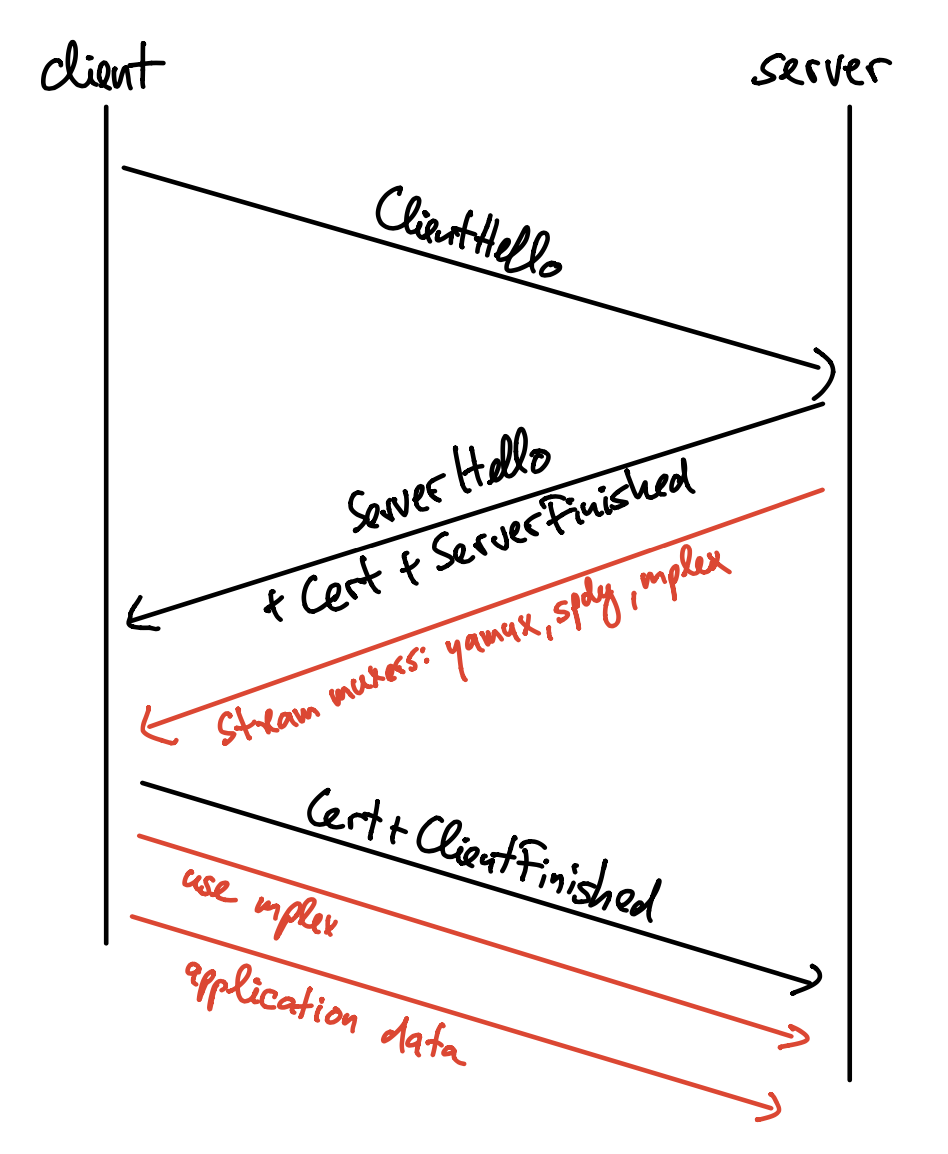 client
server
ClientHello
ServerHello
+ Cert + ServerFinished
Stream muxers: yamux, spdy, mplex
Cert + ClientFinished
use mplex
application data